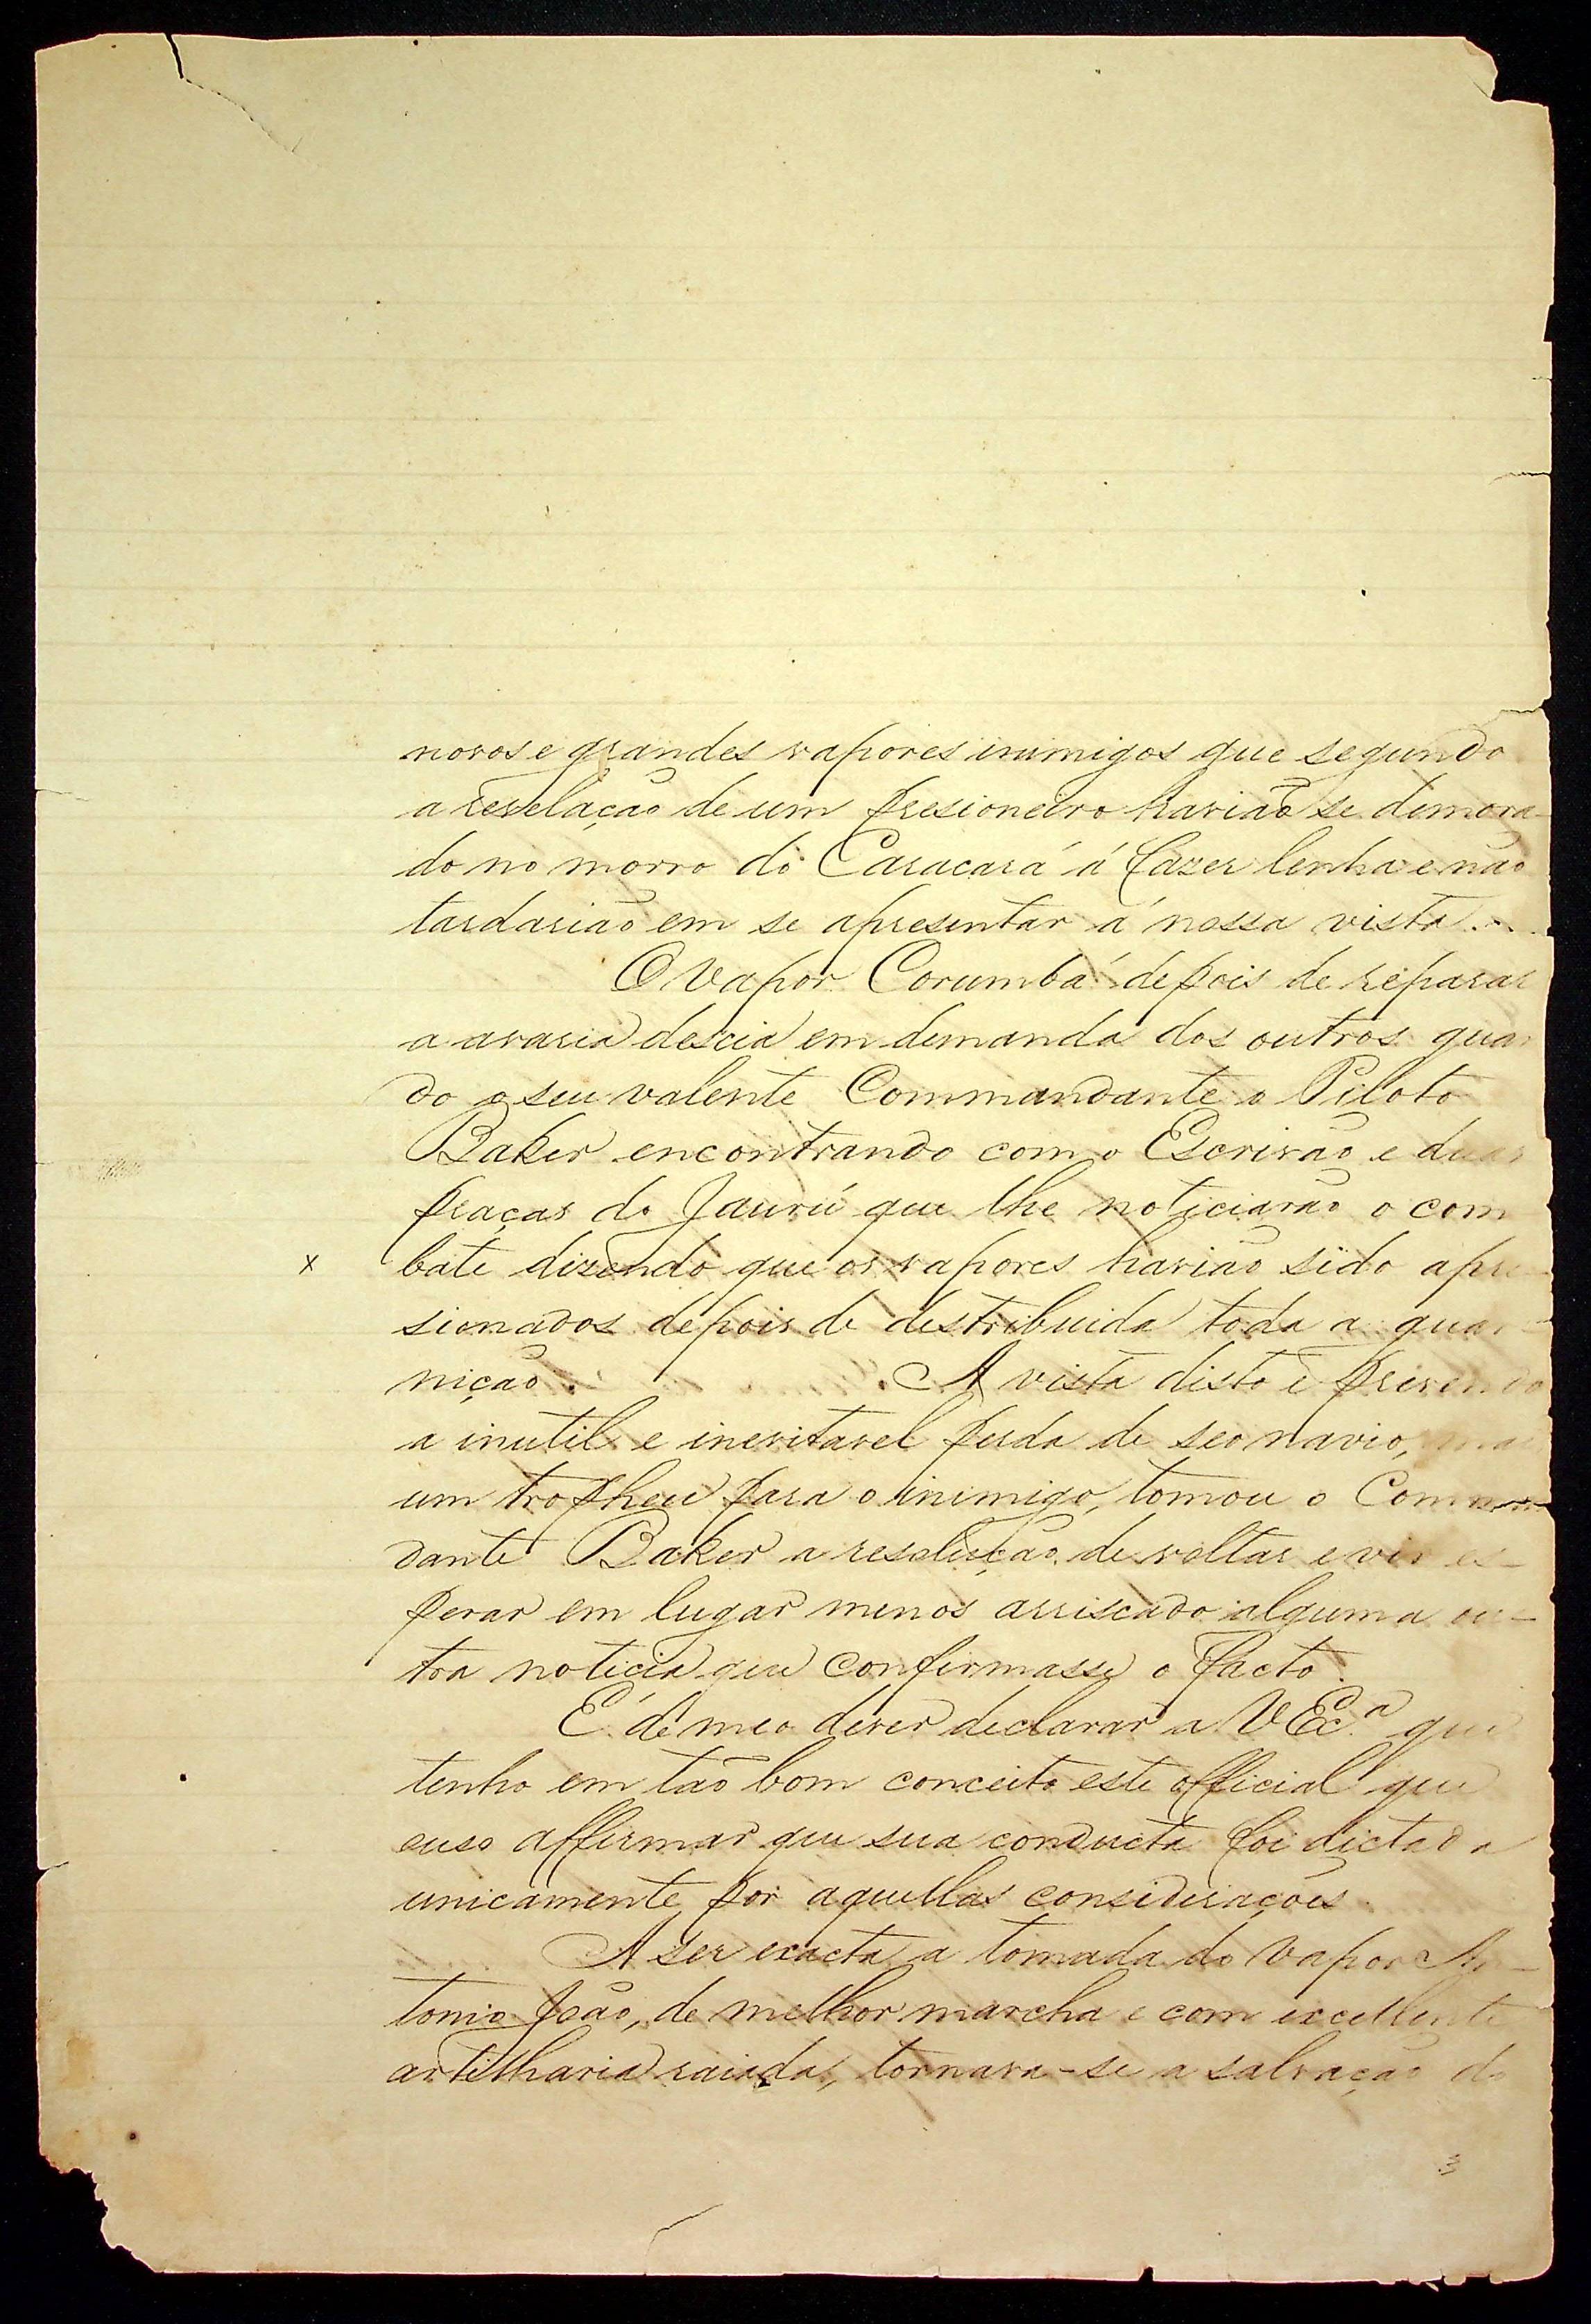 novos e grandes vapores inimigos que segundo
a revelação de um presioneiro havião se demora-
do no morro do Caracará á fazer lenha e não
tardarião em se apresentar á nossa vista.
O vapor Corumbá depois de reparar
a avaria descia em demanda dos outros quan
do o seu valente Commandante o Piloto
Baker encontrando com o Escrivão e duas
praças do Jaurú que lhe noticiarão o com
x bate dizendo que os vapores havião sido apre-
sionados depois de destribuida toda a guar-
nição. A vista disto e prevendo
a inutil e inevitavel perda de seo navio, mais
um tropheu para o inimigo, tomou o Comman-
dante Baker a resolução de voltar e vir es-
perar em lugar menos arriscado alguma ou-
tra noticia que confirmasse o facto.
É de meo dever declarar a V Exc.ª que
tenho em tão bom conceito este official que
ouso affirmar que sua conducta foi dictada
unicamente por aquellas considerações.
A ser exacta a tomada do vapor An-
tonio João, de melhor marcha e com excellente
artilharia raiada, tornava-se a salvação do
3